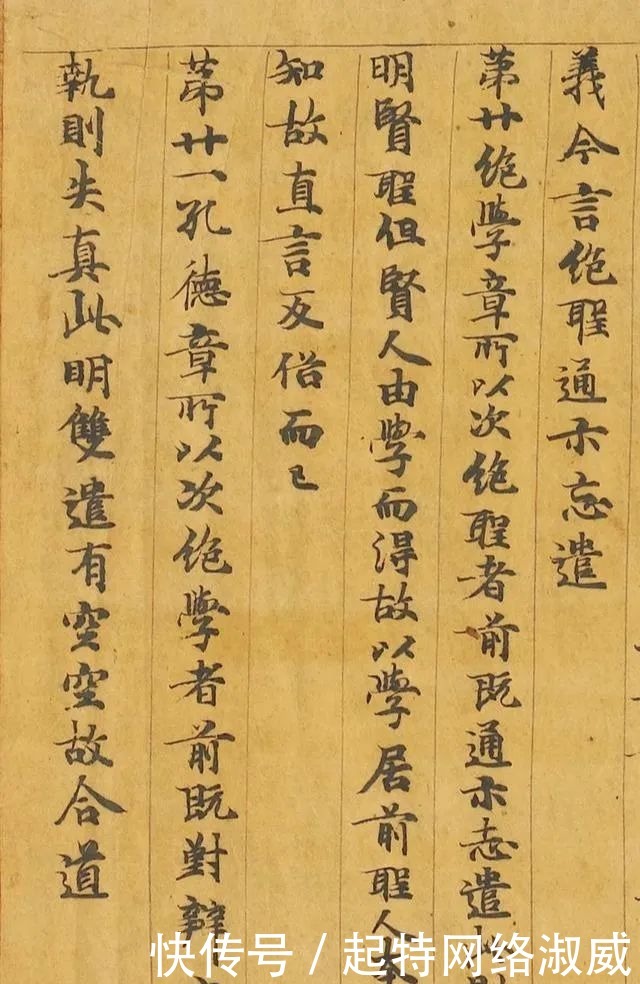 義今言絕聖通示忘遣
第廿絕學章所以次絕聖者前既通示忘遣此
明賢聖但賢人由學而得故以學居前聖人
知故直言反俗而已
第廿一孔德章所以次絕學者前既對辯
執則失真此明雙遣有空空故合道
快传号 / 起特网络淑威